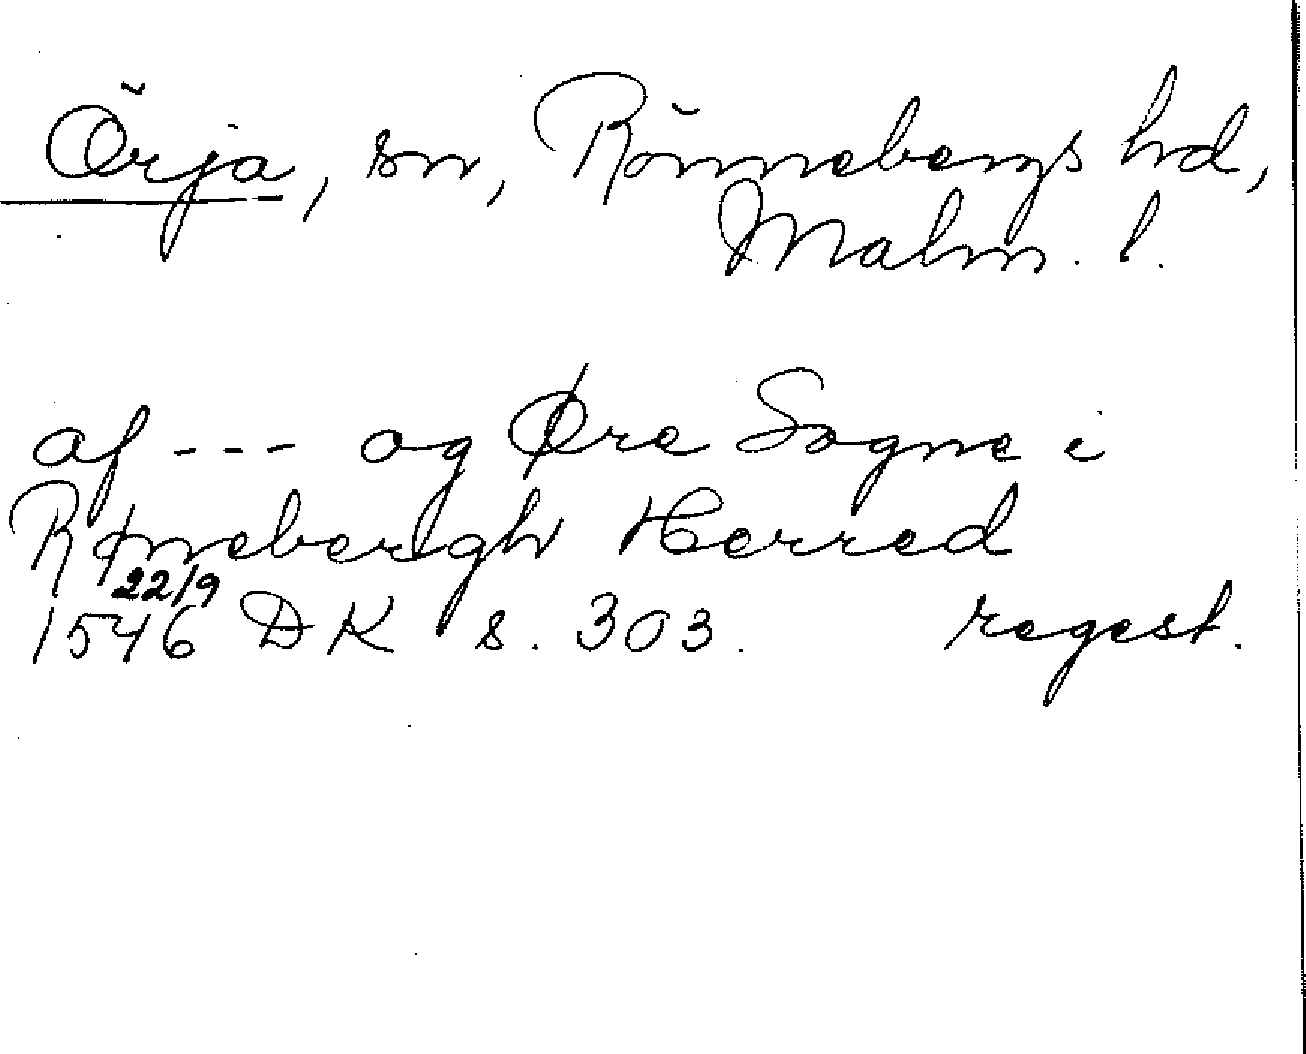 Örja, sn, Rönnebergs hd,
Malm. l.
af --- og Øre Sogne i
Rønneberigh Herred
22/9
1546 DK s. 303. regest.